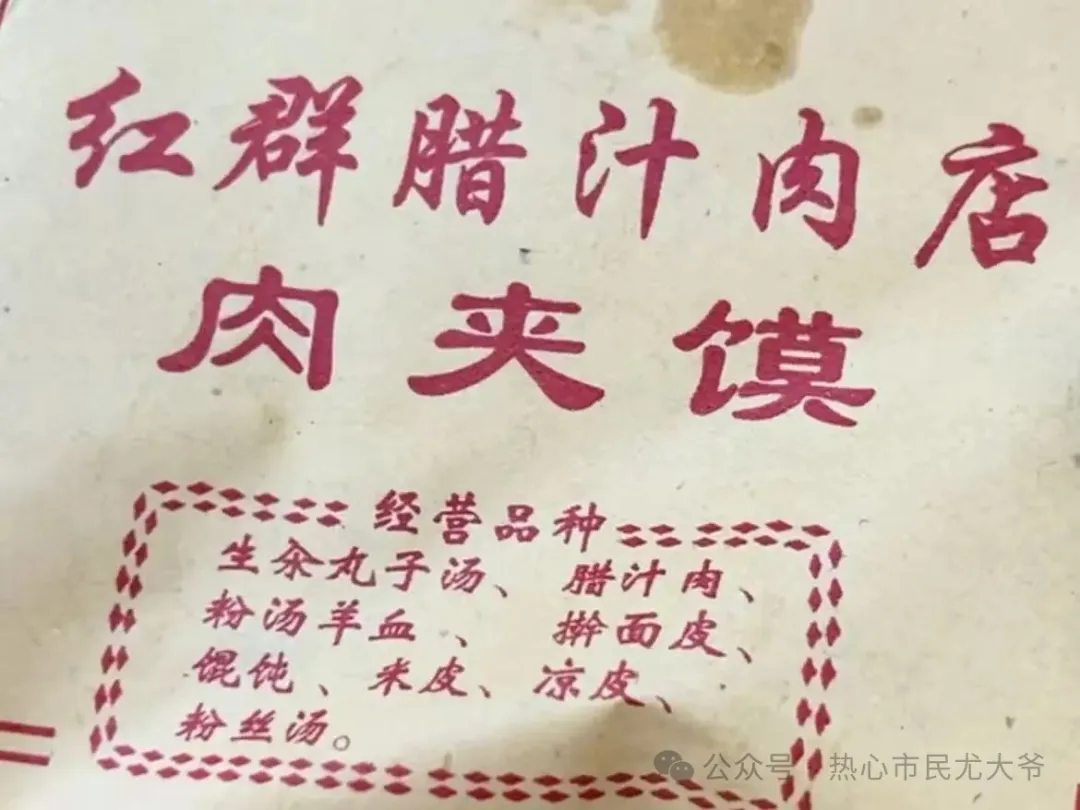 红群腊汁肉店
肉夹馍
经营品种
生汆丸子汤、腊汁肉、
粉汤羊血、擀面皮、
馄饨、米皮、凉皮、
粉丝汤。
公众号·热心市民尤大爷